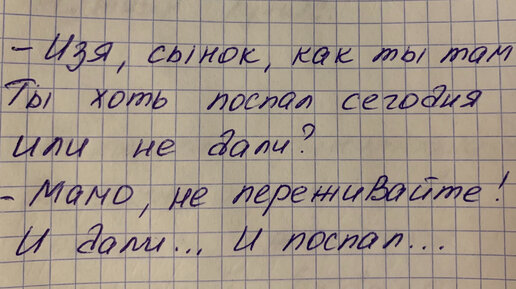 - Изя, сынок, как ты там
Ты хоть поспал сегодня
или не дали?
- Мамо, не переживайте!
И дали... И поспал...